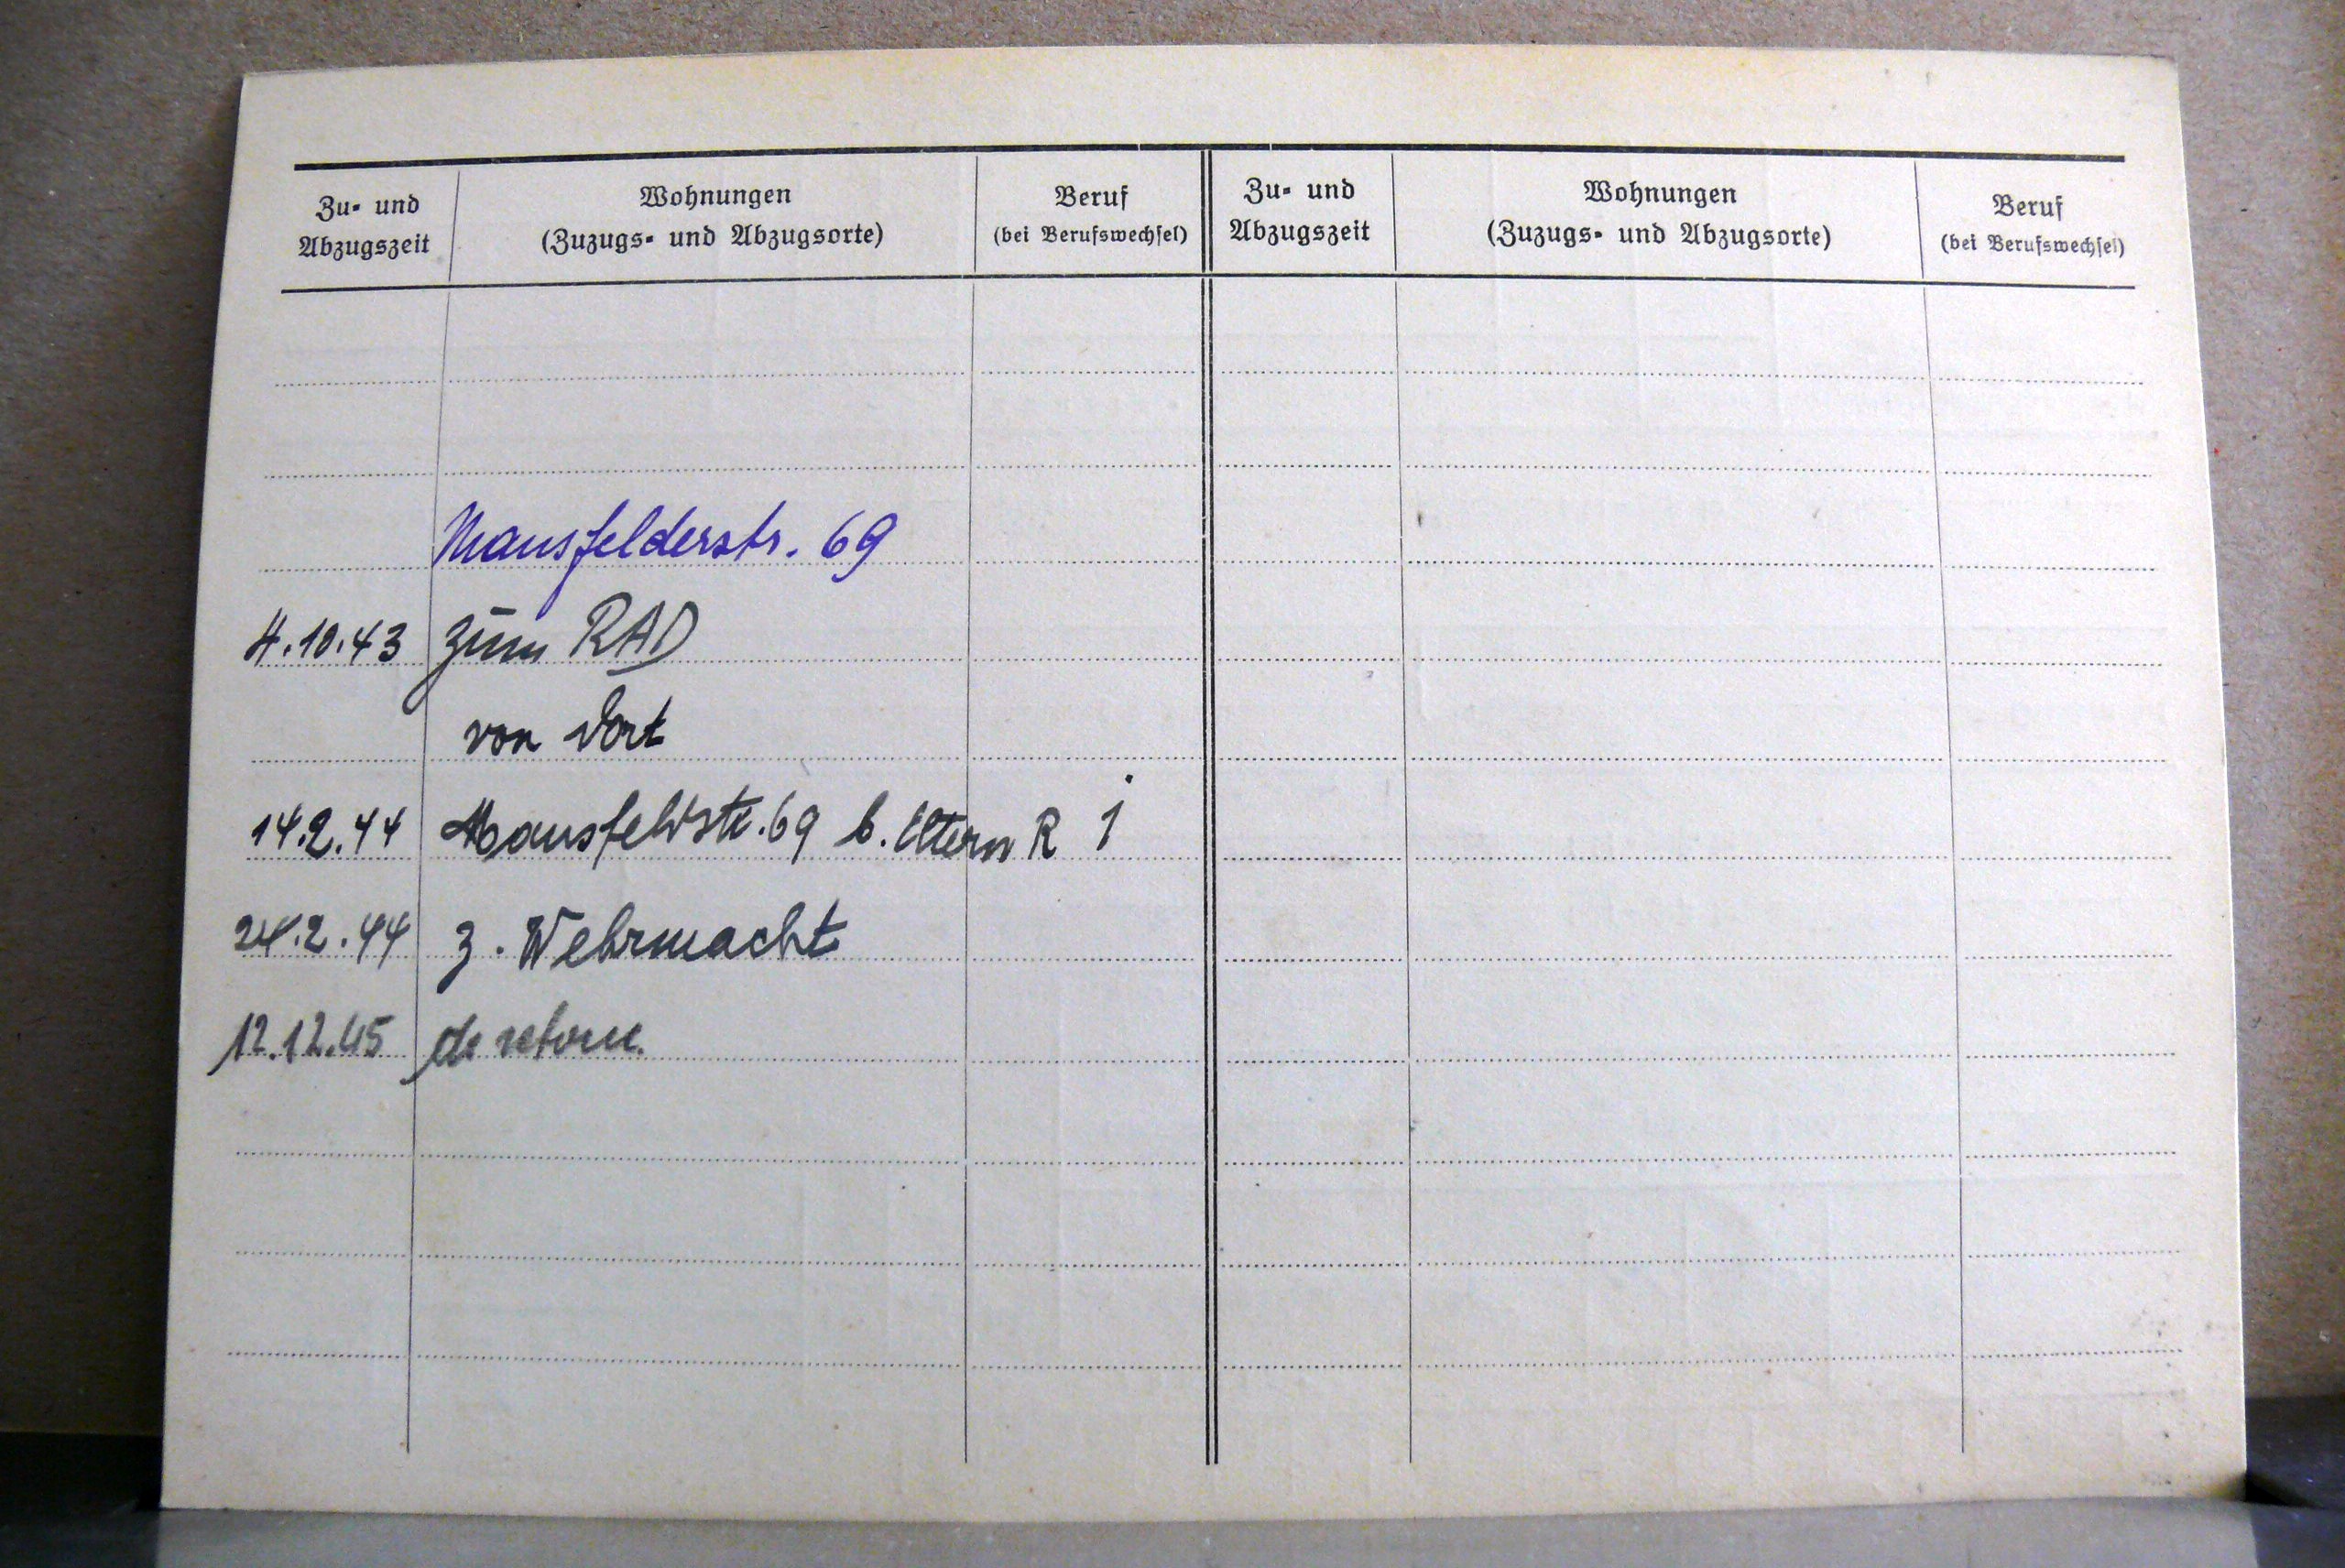 Zu- und
Abzugszeit
Wohnungen
(Zuzugs- und Abzugsorte)
Beruf
(bei Berufswechsel)
Zu- und
Abzugszeit
Wohnungen
(Zuzugs- und Abzugsorte)
Beruf
(bei Berufswechsel)
Mansfelderstr. 69
4.10.43 zum RAD
von dort
14.2.44 Mansfeldstr. 69 b. Eltern R 1
24.2.44 z. Wehrmacht
12.12.45 retour.